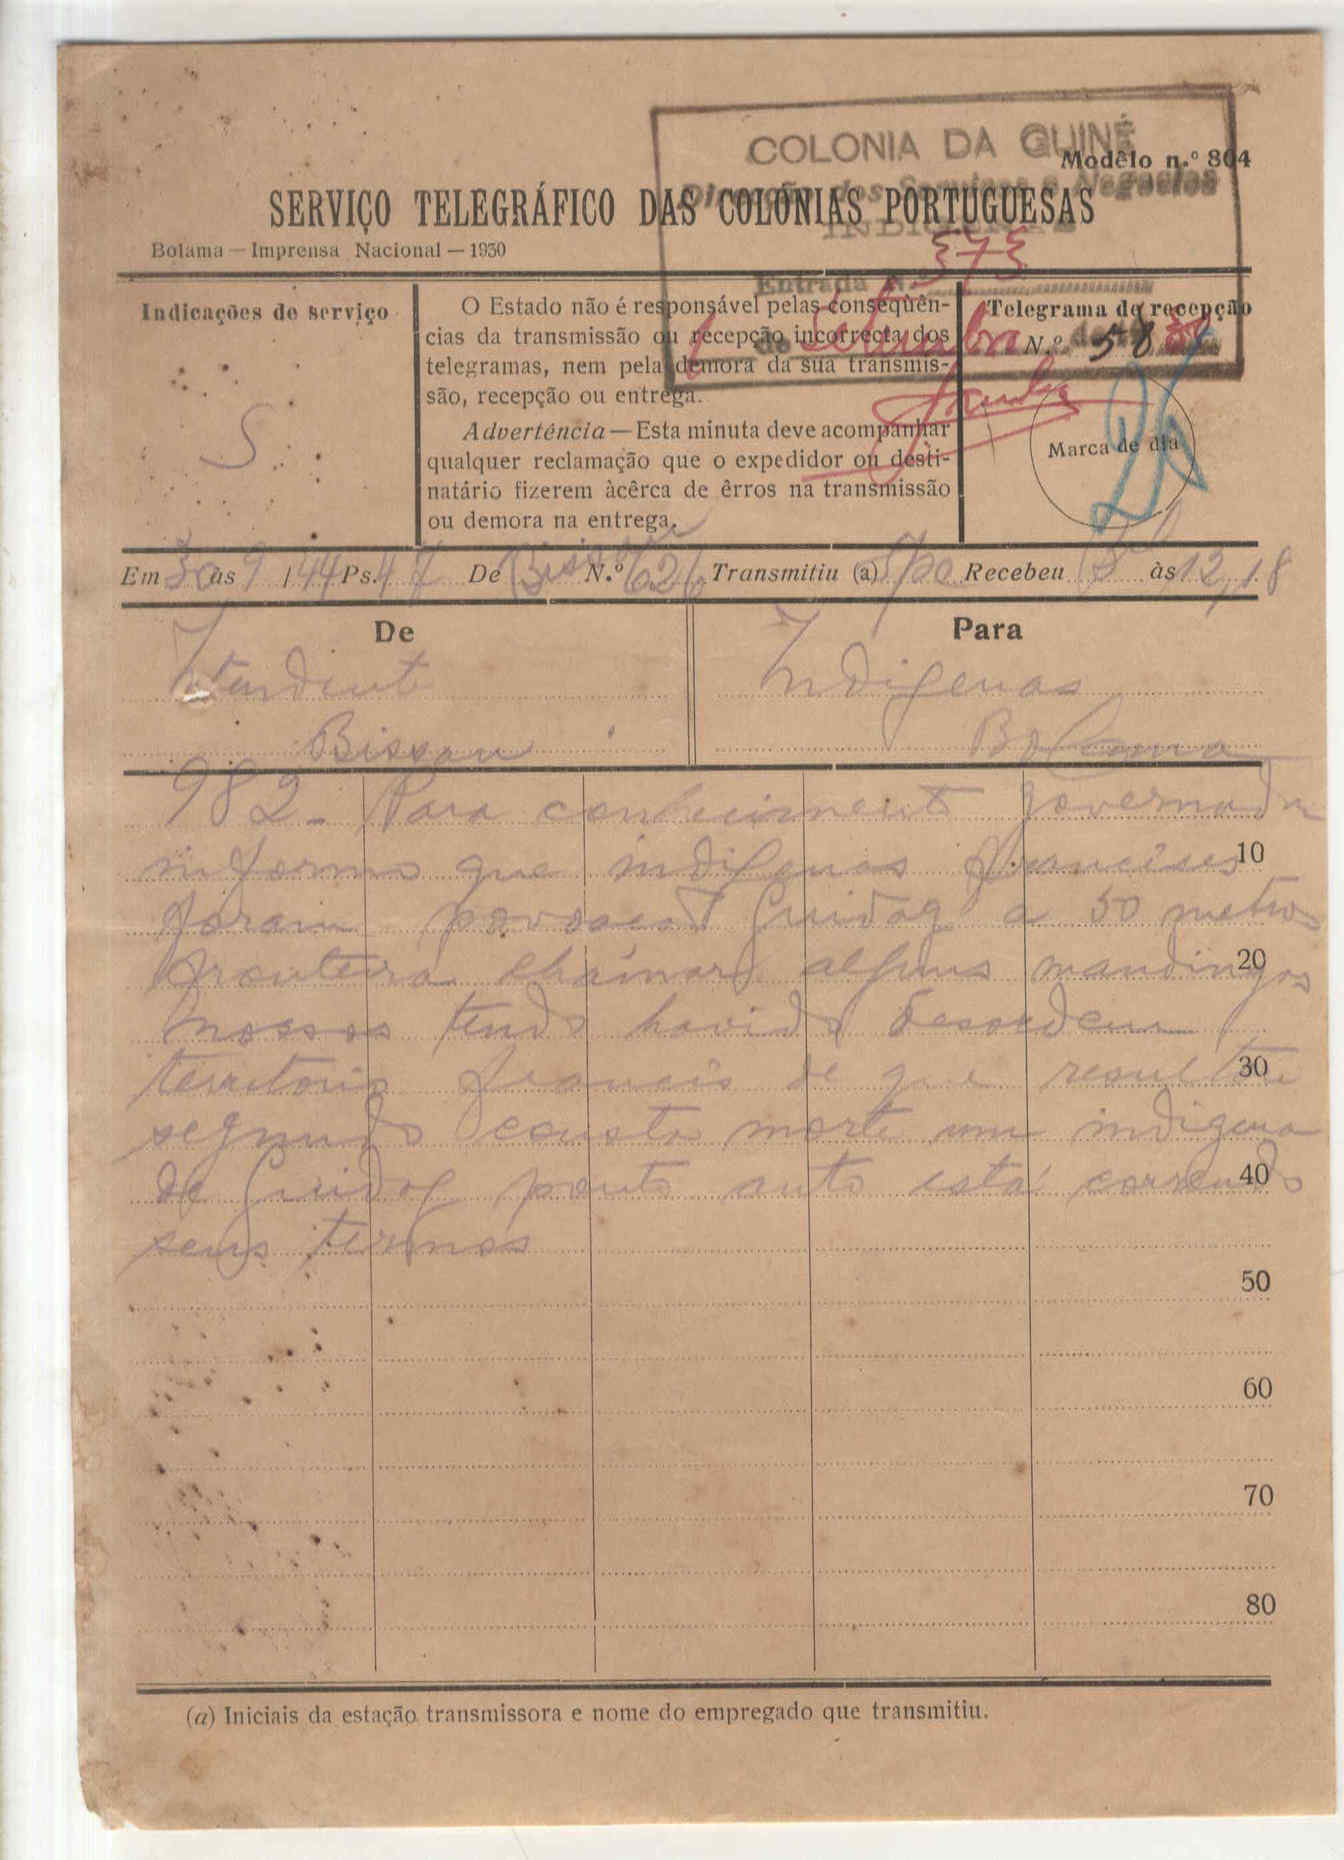 COLONIA DA GUINÉ
Modêlo n.º 804
Direcção dos Serviços e Negocios
INDIGENAS
SERVIÇO TELEGRÁFICO DAS COLÓNIAS PORTUGUESAS
Bolama — Imprensa Nacional — 1930
Entrada N.º 573
Indicações de serviço
S
O Estado não é responsável pelas conseqüên-
cias da transmissão ou recepção incorrecta dos
telegramas, nem pela demora da sua transmis-
são, recepção ou entrega.
Advertência — Esta minuta deve acompanhar
qualquer reclamação que o expedidor ou desti-
natário fizerem àcêrca de êrros na transmissão
ou demora na entrega.
de Setembro de
Telegrama de recepção
N.º 58
Marca de dia
Em 30 às 9/44 Ps. 47 De Bissau N.º 626 Transmitiu (a) Recebeu às 12,18
De
Para
Intendente
Indigenas
Bissau
Bolama
982 - Para conhecimento governador
informo que indigenas franceses 10
foram povoacao Guidag a 50 metros
fronteira chamar alguns mandingas 20
nossos tendo havido desordem
territorio francês de que resultou 30
segundo consta morte um indigena
de Guidag ponto auto está correndo 40
seus termos
50
60
70
80
(a) Iniciais da estação transmissora e nome do empregado que transmitiu.